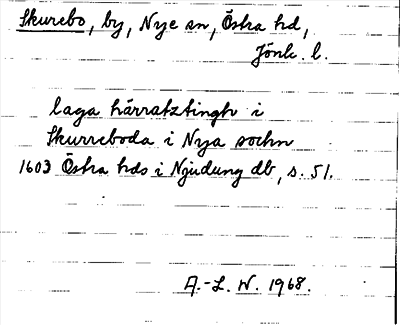 Skurebo, by, Nye sn, Östra hd,
Jönk. l.
laga härratztingh i
Skurreboda i Nya sochn
1603 Östra hds i Njudung db, s. 51.
A.-L. W. 1968.